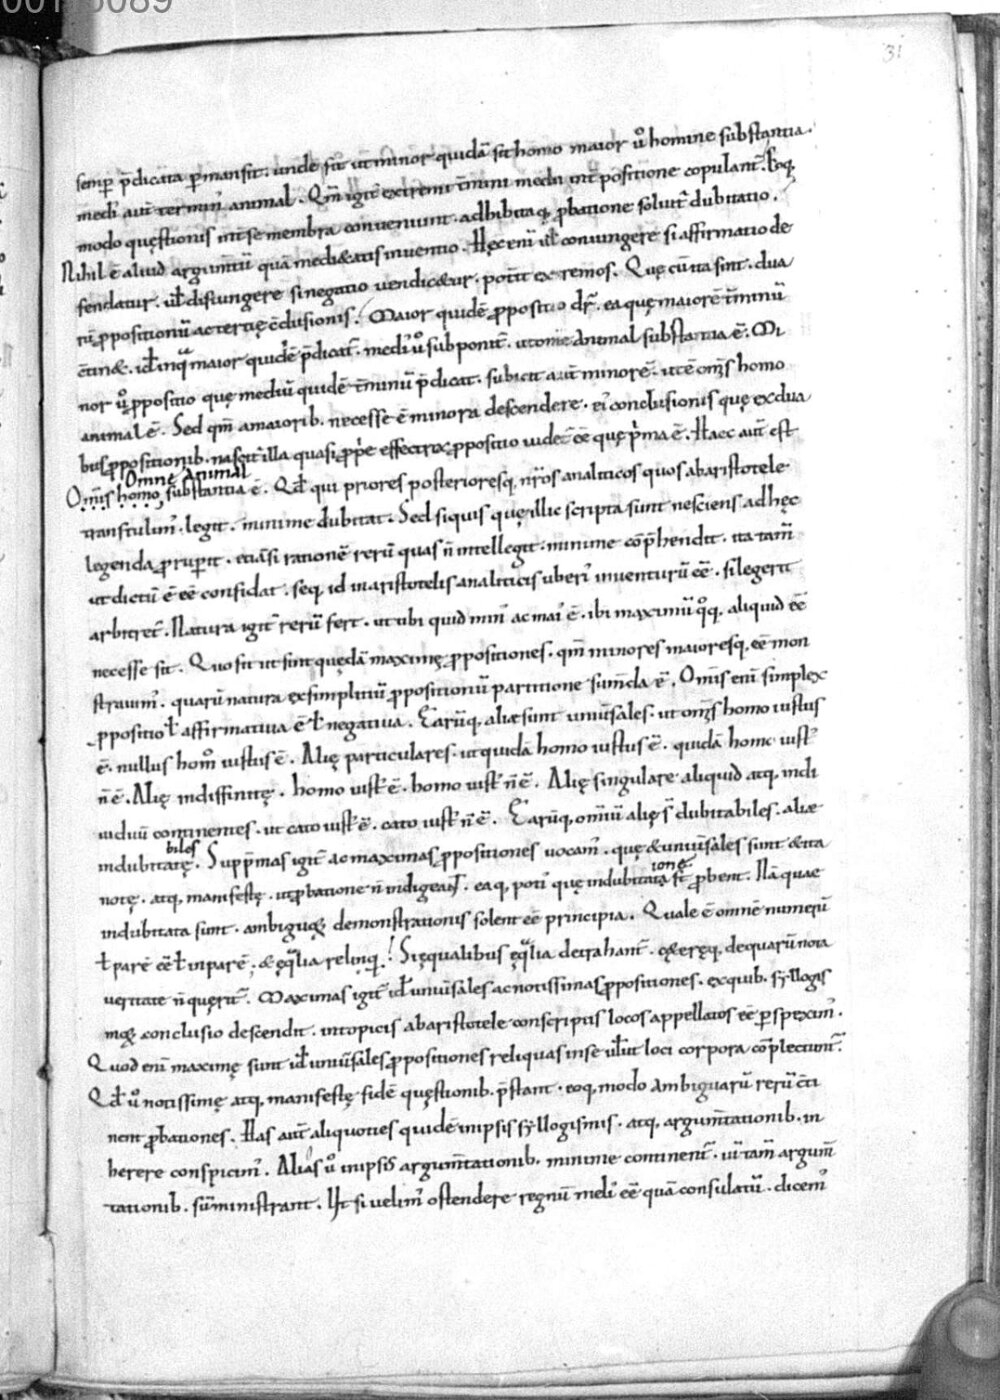 0015089
31
semꝑ p̄dicata ꝑmansit. unde sit̄ ut minor quidā sit homo maior u̾o homine substantia.
medi' aut̄ termin' animal. Qm̄ igit̄ extremi t̄mini medii int̄positione copulant̄. Eoq;
modo quęstionis int̄ se membra conveniunt. adhibitaq; ꝓbatione soluit̄ dubitatio.
Nihil ē aliud argum̄tū quā medietatis inventio. Hęc eni ut̄ coniungere si affirmatio de
fendatur. ut̄ disiungere si negatio vendicetur. potit̄ extremos. Quę cū ita sint. dua
rū ꝓpositionū ac tertię c̄clusionis. Maior quidē ꝓpositio dr̄. ea quę maiorē t̄minū
c̄tinet. id inq̄ maior quidē p̄dicat̄. medi' u̾o subponit̄. ut omē Animal substantia ē. Mi
nor u̾o ꝓpositio quę mediū quidē t̄minū p̄dicat. subicit aut̄ minorē. ut ē om̄s homo
animal ē. Sed qm̄ a maiorib. necesse ē minora descendere. ei' conclusionis quę ex dua
bus ꝓpositionib. nascit̄ illa quasi ꝓpꝛe effectrix ꝓpositio videt̄ eē quę pꝛma ē. Haec aut̄ est
Omne Animal
Om̄is homo, substantia ē. Qd̄ qui priores posterioresq; nr̄os analiticos quos ab aristotele
transtulim'. legit. minime dubitat. Sed si quis quę illic scripta sunt nesciens ad hęc
legenda ꝓrupit. etiāsi rationē rerū quas n̄ intellegit. minime cōp̄hendit. ita tam̄
ut dictū ē eē confidat. seq; id in aristotelis analiticis uberi' inventurū eē. si legerit
arbitret̄. Natura igit̄ rerū fert. ut ubi quid min' ac mai' ē. ibi maximū q̊q; aliquid eē
necesse sit. Quo fit ut sint quędā maximę ꝓpositiones. qm̄ minores maioresq; eē mon
stravim'. quarū natura ex simplitiū ꝓpositionū partitione sumēda ē. Om̄is eni simplex
ꝓpositio ɫ affirmativa ē ɫ negativa. Earūq; aliae sunt univ̄sales. ut om̄s homo iustus
ē. nullus homo iustus ē. Alię particulares. ut quidā homo iustus ē. quidā homo iust'
n̄ ē. Alię indiffinitę. homo iust' ē. homo iust' n̄ ē. Alię singulare aliquid atq; indi
viduū continentes. ut cato iust' ē. cato iust' n̄ ē. Earūq; omniū alię s̄ dubitabiles. aliae
biles
indubitatę. Supp̄mas igit̄ ac maximas ꝓpositiones vocam'. quę & univ̄sales sunt & ita
ione
notę. atq; manifestę. ut ꝓbatione n̄ indigeant. eaq; poti' quę indubitata st̄ ꝓbent. Nā quae
indubitata sunt. ambiguoꝝ demonstrationis solent eē principia. Quale ē omnē numerū
ɫ parē eē ɫ inparē. & ęq̄lia relinq̄. Si ęqualibus ęq̄lia detrahant̄. cęteręq; de quarū nota
veritate n̄ quęrit̄. Maximas igit̄ id univ̄sales ac notissimas ꝓpositiones. ex quib. syllogis
moꝝ conclusio descendit. in topicis ab aristotele conscriptis locos appellatos eē ꝑspexim'.
Quod eni maximę sunt id univ̄sales ꝓpositiones reliquas in se velut loci corpora cōplectunt̄.
Qd̄ u̾o notissimę atq; manifestę fidē quęstionib. p̄stant. eoq; modo ambiguarū rerū c̄ti
nent ꝓbationes. Has aut̄ aliquoties quidē in ipsis syllogismis. atq; argum̄tationib. in
herere conspicim'. Alias u̾o in ipsis argum̄tationib. minime continent̄. vi' tam̄ argum̄
tationib. sumministrant. Ut si velim' ostendere regnū meli' eē quā consulatū. dicem'